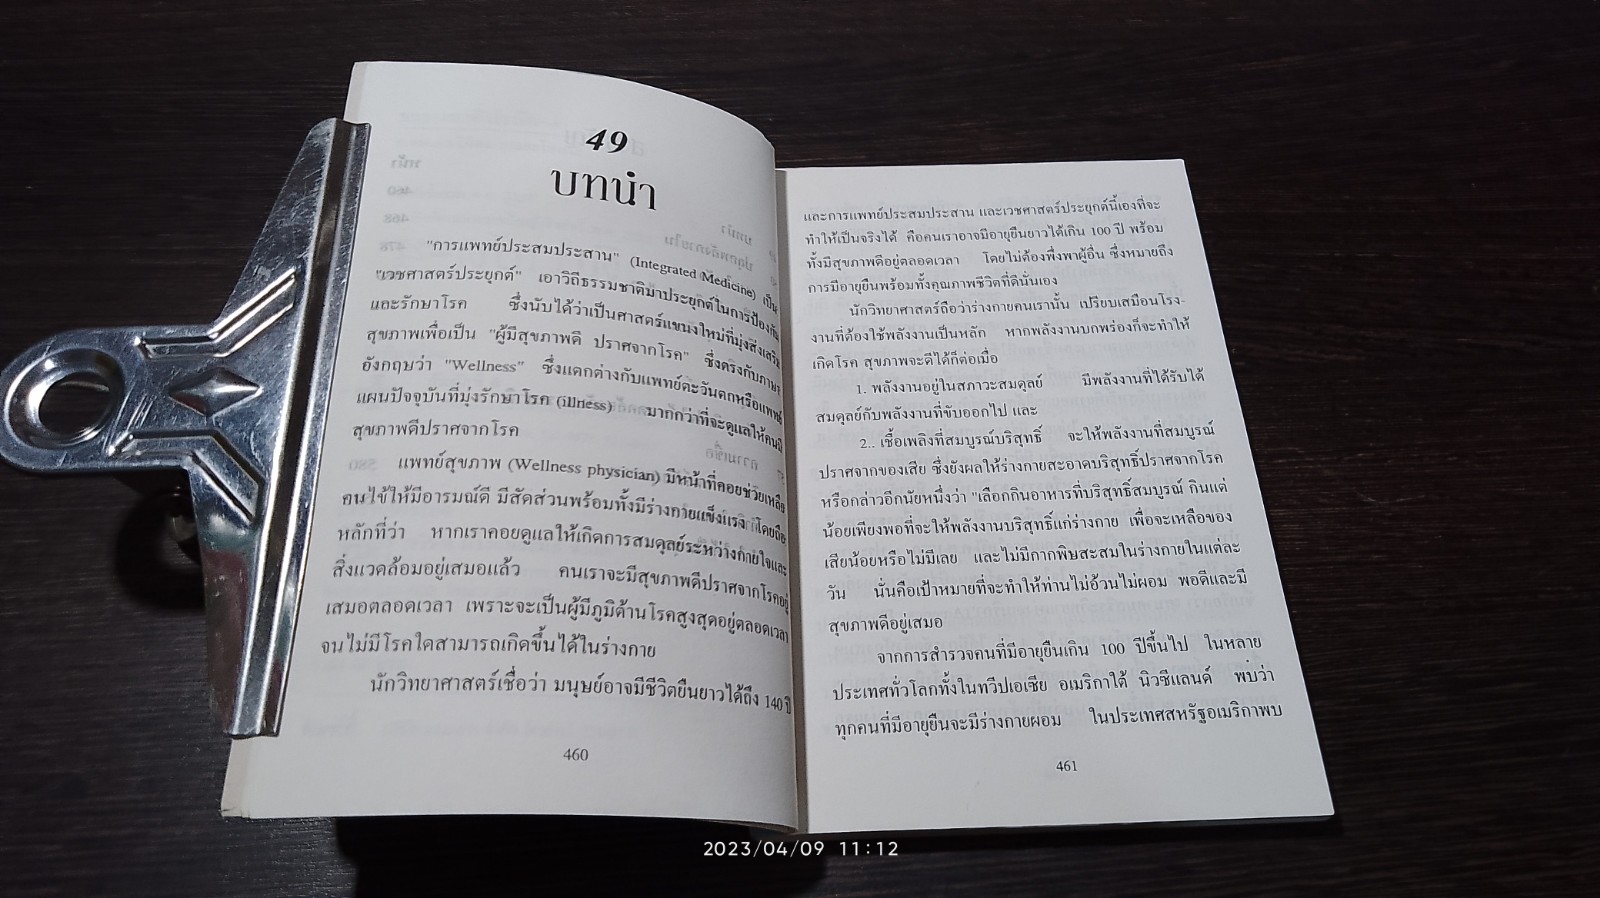 49
บทนำ
"การแพทย์ประสมประสาน" (Integrated Medicine) เป็น
"เวชศาสตร์ประยุกต์" เอาวิถีธรรมชาติมาประยุกต์ในการป้องกัน
และรักษาโรค ซึ่งนับได้ว่าเป็นศาสตร์แขนงใหม่ที่มุ่งส่งเสริม
สุขภาพเพื่อเป็น "ผู้มีสุขภาพดี ปราศจากโรค" ซึ่งตรงกับภาษา
อังกฤษว่า "Wellness" ซึ่งแตกต่างกับแพทย์ตะวันตกหรือแพทย์
แผนปัจจุบันที่มุ่งรักษาโรค (illness) มากกว่าที่จะดูแลให้คนมี
สุขภาพดีปราศจากโรค
แพทย์สุขภาพ (Wellness physician) มีหน้าที่คอยช่วยเหลือ
คนไข้ให้มีอารมณ์ดี มีสัดส่วนพร้อมทั้งมีร่างกายแข็งแรง โดยถือ
หลักที่ว่า หากเราคอยดูแลให้เกิดการสมดุลย์ระหว่างกายใจและ
สิ่งแวดล้อมอยู่เสมอแล้ว คนเราจะมีสุขภาพดีปราศจากโรคอยู่
เสมอตลอดเวลา เพราะจะเป็นผู้มีภูมิต้านโรคสูงสุดอยู่ตลอดเวลา
จนไม่มีโรคใดสามารถเกิดขึ้นได้ในร่างกาย
นักวิทยาศาสตร์เชื่อว่า มนุษย์อาจมีชีวิตยืนยาวได้ถึง 140 ปี
460
และการแพทย์ประสมประสาน และเวชศาสตร์ประยุกต์นี้เองที่จะ
ทำให้เป็นจริงได้ คือคนเราอาจมีอายุยืนยาวได้เกิน 100 ปี พร้อม
ทั้งมีสุขภาพดีอยู่ตลอดเวลา โดยไม่ต้องพึ่งพาผู้อื่น ซึ่งหมายถึง
การมีอายุยืนพร้อมทั้งคุณภาพชีวิตที่ดีนั่นเอง
นักวิทยาศาสตร์ถือว่าร่างกายคนเรานั้น เปรียบเสมือนโรง-
งานที่ต้องใช้พลังงานเป็นหลัก หากพลังงานบกพร่องก็จะทำให้
เกิดโรค สุขภาพจะดีได้ก็ต่อเมื่อ
1. พลังงานอยู่ในสภาวะสมดุลย์ มีพลังงานที่ได้รับได้
สมดุลย์กับพลังงานที่ขับออกไป และ
2.. เชื้อเพลิงที่สมบูรณ์บริสุทธิ์ จะให้พลังงานที่สมบูรณ์
ปราศจากของเสีย ซึ่งยังผลให้ร่างกายสะอาดบริสุทธิ์ปราศจากโรค
หรือกล่าวอีกนัยหนึ่งว่า "เลือกกินอาหารที่บริสุทธิ์สมบูรณ์ กินแต่
น้อยเพียงพอที่จะให้พลังงานบริสุทธิ์แก่ร่างกาย เพื่อจะเหลือของ
เสียน้อยหรือไม่มีเลย และไม่มีกากพิษสะสมในร่างกายในแต่ละ
วัน นั่นคือเป้าหมายที่จะทำให้ท่านไม่อ้วนไม่ผอม พอดีและมี
สุขภาพดีอยู่เสมอ
จากการสำรวจคนที่มีอายุยืนเกิน 100 ปีขึ้นไป ในหลาย
ประเทศทั่วโลกทั้งในทวีปเอเซีย อเมริกาใต้ นิวซีแลนด์ พบว่า
ทุกคนที่มีอายุยืนจะมีร่างกายผอม ในประเทศสหรัฐอเมริกาพบ
461
2023/04/09 11:12